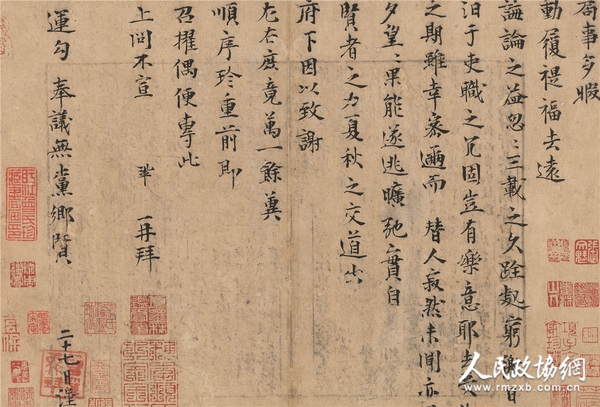 局事多暇
動履禔福去遠
誨論之益忽〻三載之久跧處窮徼日
汩于吏職之冗固豈有樂意耶去受
之期雖幸密邇而替人寂然未聞亦
夕望〻果能遂逃曠弛實自
賢者之力夏秋之交道出
府下因以致謝
左右庶竟萬一餘冀
順序珍重前即
召擢偶便專此
上問不宣 鞏 再拜
運勾奉議無黨鄉賢
二十七日謹
人民政协網
www.rmzxb.com.cn